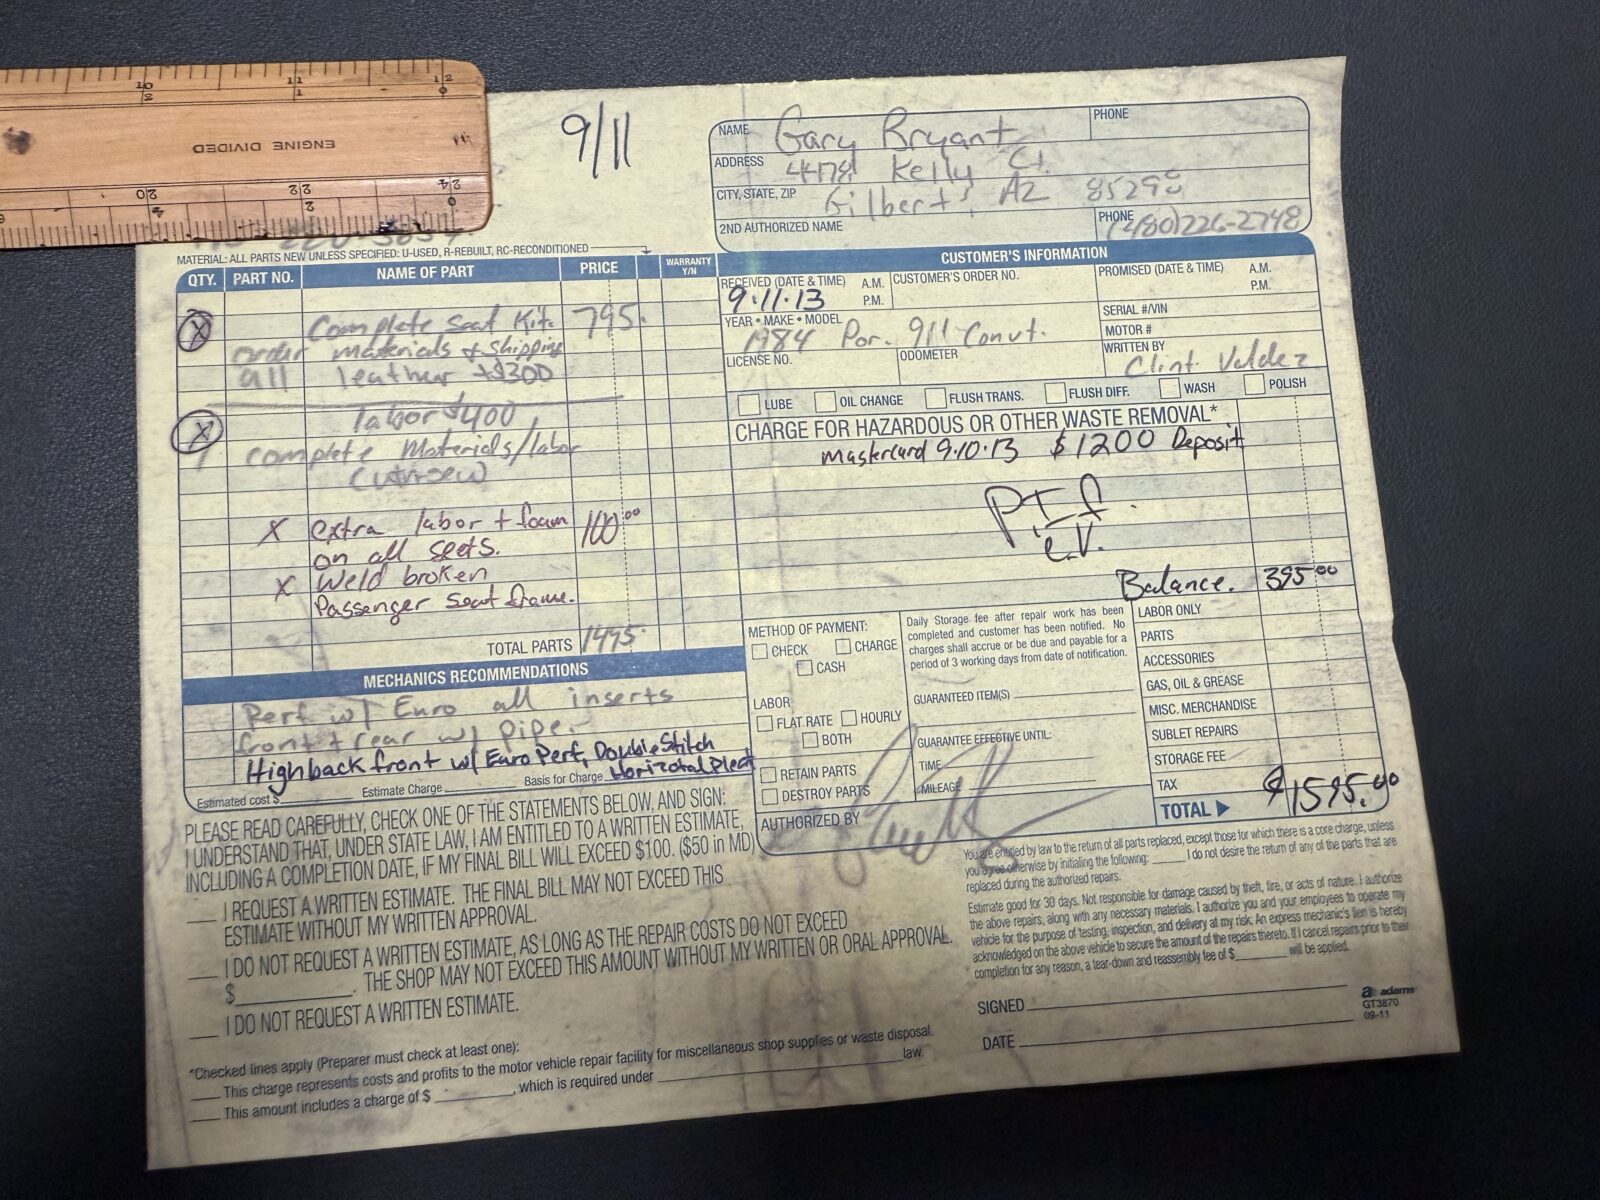 10 11 12
ENGINE DIVIDED
20 22 24
9/11
NAME Gary Bryant PHONE
ADDRESS Kelly Ct.
CITY, STATE, ZIP Gilbert, AZ
2ND AUTHORIZED NAME PHONE (480)226-2748
MATERIAL: ALL PARTS NEW UNLESS SPECIFIED: U-USED, R-REBUILT, RC-RECONDITIONED
QTY. PART NO. NAME OF PART PRICE WARRANTY Y/N
X Complete Seat Kit. 795.
order materials + shipping
all leather +$300
labor $400
X complete Materials/labor
X extra labor + foam 100.00
on all seats.
X Weld broken
Passenger seat frame.
TOTAL PARTS 1495.
MECHANICS RECOMMENDATIONS
Perf w/ Euro all inserts
front + rear w/ pipe.
Highback front w/ Euro Perf, Double Stitch
Horizotal Pleat
Estimated cost $ Estimate Charge Basis for Charge
CUSTOMER'S INFORMATION
RECEIVED (DATE & TIME) A.M. P.M. CUSTOMER'S ORDER NO. PROMISED (DATE & TIME) A.M. P.M.
9.11.13
SERIAL #/VIN
YEAR • MAKE • MODEL MOTOR #
1984 Por. 911 Convt.
LICENSE NO. ODOMETER WRITTEN BY
Clint Valdez
LUBE OIL CHANGE FLUSH TRANS. FLUSH DIFF. WASH POLISH
CHARGE FOR HAZARDOUS OR OTHER WASTE REMOVAL*
Mastercard 9.10.13 $1200 Deposit
Balance. 395.00
METHOD OF PAYMENT:
CHECK CHARGE
CASH
LABOR
FLAT RATE HOURLY
BOTH
RETAIN PARTS
DESTROY PARTS
AUTHORIZED BY
Daily Storage fee after repair work has been
completed and customer has been notified. No
charges shall accrue or be due and payable for a
period of 3 working days from date of notification.
GUARANTEED ITEM(S)
GUARANTEE EFFECTIVE UNTIL:
TIME
MILEAGE
LABOR ONLY
PARTS
ACCESSORIES
GAS, OIL & GREASE
MISC. MERCHANDISE
SUBLET REPAIRS
STORAGE FEE
TAX
TOTAL $1595.00
PLEASE READ CAREFULLY, CHECK ONE OF THE STATEMENTS BELOW, AND SIGN:
I UNDERSTAND THAT, UNDER STATE LAW, I AM ENTITLED TO A WRITTEN ESTIMATE,
INCLUDING A COMPLETION DATE, IF MY FINAL BILL WILL EXCEED $100. ($50 in MD)
I REQUEST A WRITTEN ESTIMATE. THE FINAL BILL MAY NOT EXCEED THIS
ESTIMATE WITHOUT MY WRITTEN APPROVAL.
I DO NOT REQUEST A WRITTEN ESTIMATE, AS LONG AS THE REPAIR COSTS DO NOT EXCEED
$ . THE SHOP MAY NOT EXCEED THIS AMOUNT WITHOUT MY WRITTEN OR ORAL APPROVAL.
I DO NOT REQUEST A WRITTEN ESTIMATE.
*Checked lines apply (Preparer must check at least one):
This charge represents costs and profits to the motor vehicle repair facility for miscellaneous shop supplies or waste disposal.
This amount includes a charge of $ , which is required under law.
You are entitled by law to the return of all parts replaced, except those for which there is a core charge, unless
you agree otherwise by initialing the following: I do not desire the return of any of the parts that are
replaced during the authorized repairs.
Estimate good for 30 days. Not responsible for damage caused by theft, fire, or acts of nature. I authorize
the above repairs, along with any necessary materials. I authorize you and your employees to operate my
vehicle for the purpose of testing, inspection, and delivery at my risk. An express mechanic's lien is hereby
acknowledged on the above vehicle to secure the amount of the repairs thereto. If I cancel repairs prior to their
completion for any reason, a tear-down and reassembly fee of $ will be applied.
SIGNED
DATE
a adams
GT3870
08-11